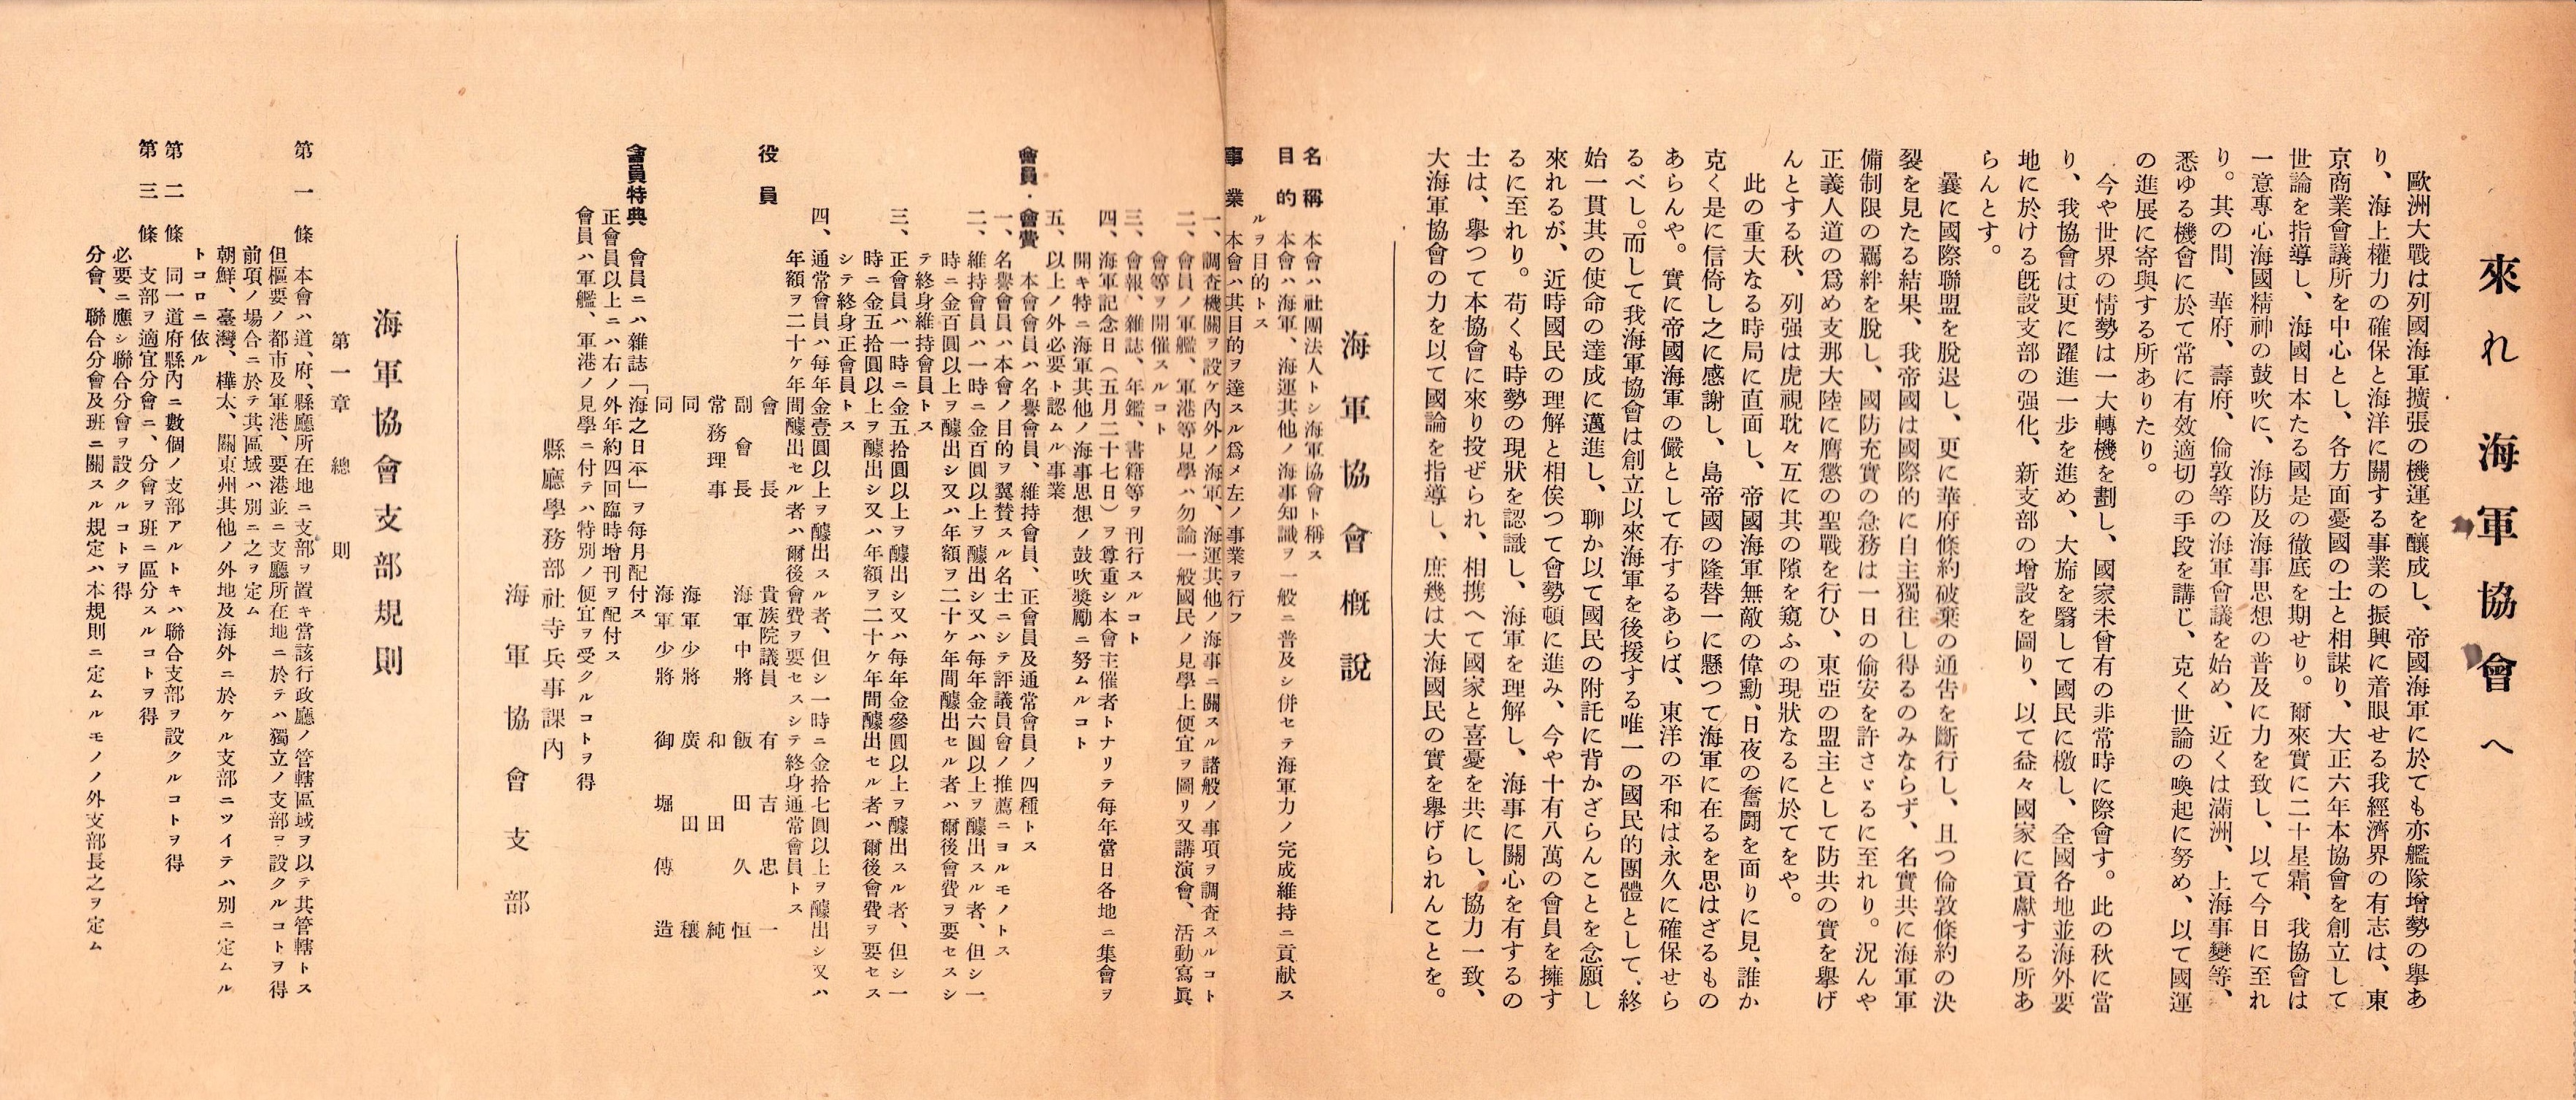 來れ海軍協會へ
歐洲大戰は列國海軍擴張の機運を釀成し、帝國海軍に於ても亦艦隊增勢の擧あ
り、海上權力の確保と海洋に關する事業の振興に着眼せる我經濟界の有志は、東
京商業會議所を中心とし、各方面憂國の士と相謀り、大正六年本協會を創立して
世論を指導し、海國日本たる國是の徹底を期せり。爾來實に二十星霜、我協會は
一意專心海國精神の鼓吹に、海防及海事思想の普及に力を致し、以て今日に至れ
り。其の間、華府、壽府、倫敦等の海軍會議を始め、近くは滿洲、上海事變等、
悉ゆる機會に於て常に有效適切の手段を講じ、克く世論の喚起に努め、以て國運
の進展に寄與する所ありたり。
今や世界の情勢は一大轉機を劃し、國家未曾有の非常時に際會す。此の秋に當
り、我協會は更に躍進一步を進め、大旆を翳して國民に檄し、全國各地並海外要
地に於ける旣設支部の强化、新支部の增設を圖り、以て益々國家に貢獻する所あ
らんとす。
曩に國際聯盟を脫退し、更に華府條約破棄の通告を斷行し、且つ倫敦條約の決
裂を見たる結果、我帝國は國際的に自主獨往し得るのみならず、名實共に海軍軍
備制限の羈絆を脫し、國防充實の急務は一日の偷安を許さゞるに至れり。況んや
正義人道の爲め支那大陸に膺懲の聖戰を行ひ、東亞の盟主として防共の實を擧げ
んとする秋、列强は虎視眈々互に其の隙を窺ふの現狀なるに於てをや。
此の重大なる時局に直面し、帝國海軍無敵の偉勳、日夜の奮鬪を面りに見、誰か
克く是に信倚し之に感謝し、島帝國の隆替一に懸つて海軍に在るを思はざるもの
あらんや。實に帝國海軍の嚴として存するあらば、東洋の平和は永久に確保せら
るべし。而して我海軍協會は創立以來海軍を後援する唯一の國民的團體として、終
始一貫其の使命の達成に邁進し、聊か以て國民の附託に背かざらんことを念願し
來れるが、近時國民の理解と相俟つて會勢頓に進み、今や十有八萬の會員を擁す
るに至れり。苟くも時勢の現狀を認識し、海軍を理解し、海事に關心を有するの
士は、擧つて本協會に來り投ぜられ、相携へて國家と喜憂を共にし、協力一致、
大海軍協會の力を以て國論を指導し、庶幾は大海國民の實を擧げられんことを。
海軍協會槪說
名稱 本會ハ社團法人トシ海軍協會ト稱ス
目的 本會ハ海軍、海運其他ノ海事知識ヲ一般ニ普及シ併セテ海軍力ノ完成維持ニ貢献ス
ルヲ目的トス
事業 本會ハ其目的ヲ達スル爲メ左ノ事業ヲ行フ
一、調查機關ヲ設ケ內外ノ海軍、海運其他ノ海事ニ關スル諸般ノ事項ヲ調查スルコト
二、會員ノ軍艦、軍港等見學ハ勿論一般國民ノ見學上便宜ヲ圖リ又講演會、活動寫眞
會等ヲ開催スルコト
三、會報、雜誌、年鑑、書籍等ヲ刊行スルコト
四、海軍記念日（五月二十七日）ヲ尊重シ本會主催者トナリテ每年當日各地ニ集會ヲ
開キ特ニ海軍其他ノ海事思想ノ鼓吹奬勵ニ努ムルコト
五、以上ノ外必要ト認ムル事業
會員・會費 本會會員ハ名譽會員、維持會員、正會員及通常會員ノ四種トス
一、名譽會員ハ本會ノ目的ヲ翼賛スル名士ニシテ評議員會ノ推薦ニヨルモノトス
二、維持會員ハ一時ニ金百圓以上ヲ醵出シ又ハ每年金六圓以上ヲ醵出スル者、但シ一
時ニ金百圓以上ヲ醵出シ又ハ年額ヲ二十ケ年間醵出セル者ハ爾後會費ヲ要セスシ
テ終身維持會員トス
三、正會員ハ一時ニ金五拾圓以上ヲ醵出シ又ハ每年金參圓以上ヲ醵出スル者、但シ一
時ニ金五拾圓以上ヲ醵出シ又ハ年額ヲ二十ケ年間醵出セル者ハ爾後會費ヲ要セス
シテ終身正會員トス
四、通常會員ハ每年金壹圓以上ヲ醵出スル者、但シ一時ニ金拾七圓以上ヲ醵出シ又ハ
年額ヲ二十ケ年間醵出セル者ハ爾後會費ヲ要セスシテ終身通常會員トス
役員 會長 貴族院議員 有吉忠一
副會長 海軍中將 飯田久恒
常務理事 和田純
同 海軍少將 廣田穰
同 海軍少將 御堀傳造
會員特典 會員ニハ雜誌「海之日本」ヲ每月配付ス
正會員以上ニハ右ノ外年約四回臨時增刊ヲ配付ス
會員ハ軍艦、軍港ノ見學ニ付テハ特別ノ便宜ヲ受クルコトヲ得
縣廳學務部社寺兵事課內
海軍協會支部
海軍協會支部規則
第一章 總則
第一條 本會ハ道、府、縣廳所在地ニ支部ヲ置キ當該行政廳ノ管轄區域ヲ以テ其管轄トス
但樞要ノ都市及軍港、要港並ニ支廳所在地ニ於テハ獨立ノ支部ヲ設クルコトヲ得
前項ノ場合ニ於テ其區域ハ別ニ之ヲ定ム
朝鮮、臺灣、樺太、關東州其他ノ外地及海外ニ於ケル支部ニツイテハ別ニ定ムル
トコロニ依ル
第二條 同一道府縣內ニ數個ノ支部アルトキハ聯合支部ヲ設クルコトヲ得
第三條 支部ヲ適宜分會ニ、分會ヲ班ニ區分スルコトヲ得
必要ニ應シ聯合分會ヲ設クルコトヲ得
分會、聯合分會及班ニ關スル規定ハ本規則ニ定ムルモノノ外支部長之ヲ定ム